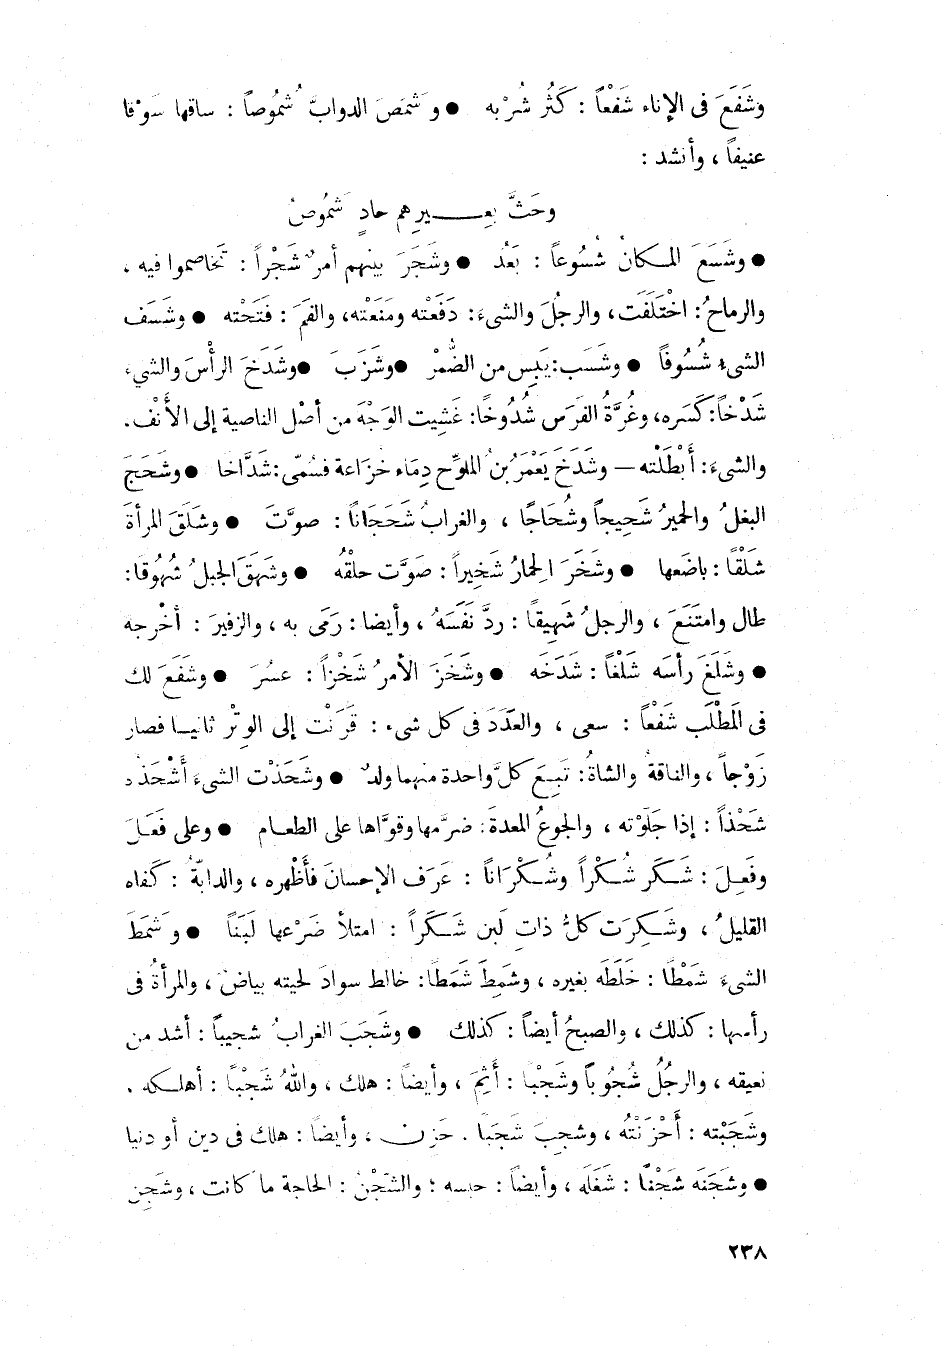 وشَفَعَ فى الإناء شَفْعاً : كَثُر شُرْبه ● وشَمَصَ الدوابَّ شُمُوصاً : ساقها سَوْقا
عنيفاً ، وأنشد :
وحَثَّ بعِيرهم حادٍ شَمُوصُ
● وشَسَعَ المكانُ شُسُوعاً : بَعُد ● وشَجَرَ بينهم أمرٌ شَجْراً : تَخاصموا فيه ،
والرماحُ : اخْتَلَفَت ، والرجُلَ والشىءَ : دَفَعْته ومَنَعْته، والفَمَ : فتَحْته ● وشَسَف
الشىءُ شُسُوفاً ● وشَسَب: يَبِس من الضُّمْر ● وشَزَبَ ● وشَدَخَ الرأْسَ والشيءَ
شَدْخاً: كَسَره، وغُرَّةُ الفَرَس شُدُوخًا: غَشِيت الوَجْهَ من أصْل الناصية إلى الأَنْف.
والشىءَ: أَبْطَلْته — وشَدَخَ يَعْمَرُ بنُ الملوّح دِمَاء خزَاعة فسُمّى: شَدَّاخا ● وشَحَجَ
البغلُ والحميرُ شَحِيجاً وشُحَاجًا ، والغرابُ شَحَجَاناً : صوَّتَ ● وشَلَقَ المرأةَ
شَلْقًا : باضَعها ● وشَخَرَ الحِمارُ شَخِيراً : صَوَّت حلقُهُ ● وشَهَقَ الجبلُ شُهُوقَا:
طال وامتَنَعَ ، والرجلُ شَهِيقًا : ردَّ نَفَسَهُ ، وأيضا : رَمَى به ، والزفيرَ : أخْرجه
● وشَلَغَ رأسَه شَلْغاً : شَدَخَه ● وشَخَزَ الأمرُ شَخْزاً : عسُرَ ● وشَفَعَ لك
فى المَطْلَب شَفْعاً : سعى ، والعَدَدَ فى كل شىء : قَرَنْت إلى الوِتْر ثانيا فصار
زَوْجاً ، والناقةُ والشاةُ : تَبِعَ كلَّ واحدة منهما ولدٌ ● وشَحَذْت الشىءَ أَشْحَذه
شَحْذاً : إذا جَلَوْته ، والجوعُ المعدةَ : ضرَّمها وقوَّاها على الطعام ● وعلى فَعَلَ
وفَعِلَ : شَكَر شُكْراً وشُكْرَاناً : عَرَف الإحسانَ فأَظْهره ، والدابّةُ : كَفاه
القليلُ ، وشَكِرَت كلُّ ذاتِ لَبن شَكَراً : امتلأَ ضَرْعها لَبَنَاً ● وشَمَطَ
الشىءَ شَمْطًا : خَلَطَه بغيره ، وشَمِطَ شَمَطًا : خالط سوادَ لحيته بياضٌ ، والمرأةُ فى
رأسها : كذلك ، والصبحُ أيضاً : كذلك ● وشَجَبَ الغرابُ شجيباً : أشد من
نعيقه ، والرجُلُ شُجُوباً وشَجْبًا : أَثِمَ ، وأيضاً : هلك ، واللهُ شَجْبًا : أهلكه .
وشَجَبْته : أَحْزَنْتُه ، وشجِبَ شَجَبا . حَزِن ، وأيضاً : هلك فى دين أو دنيا
● وشَجَنَه شَجْنًا : شَغَلَه ، وأيضاً : حبسه ؛ والشَّجْنُ : الحاجة ما كانت ، وشَجِن
٢٣٨